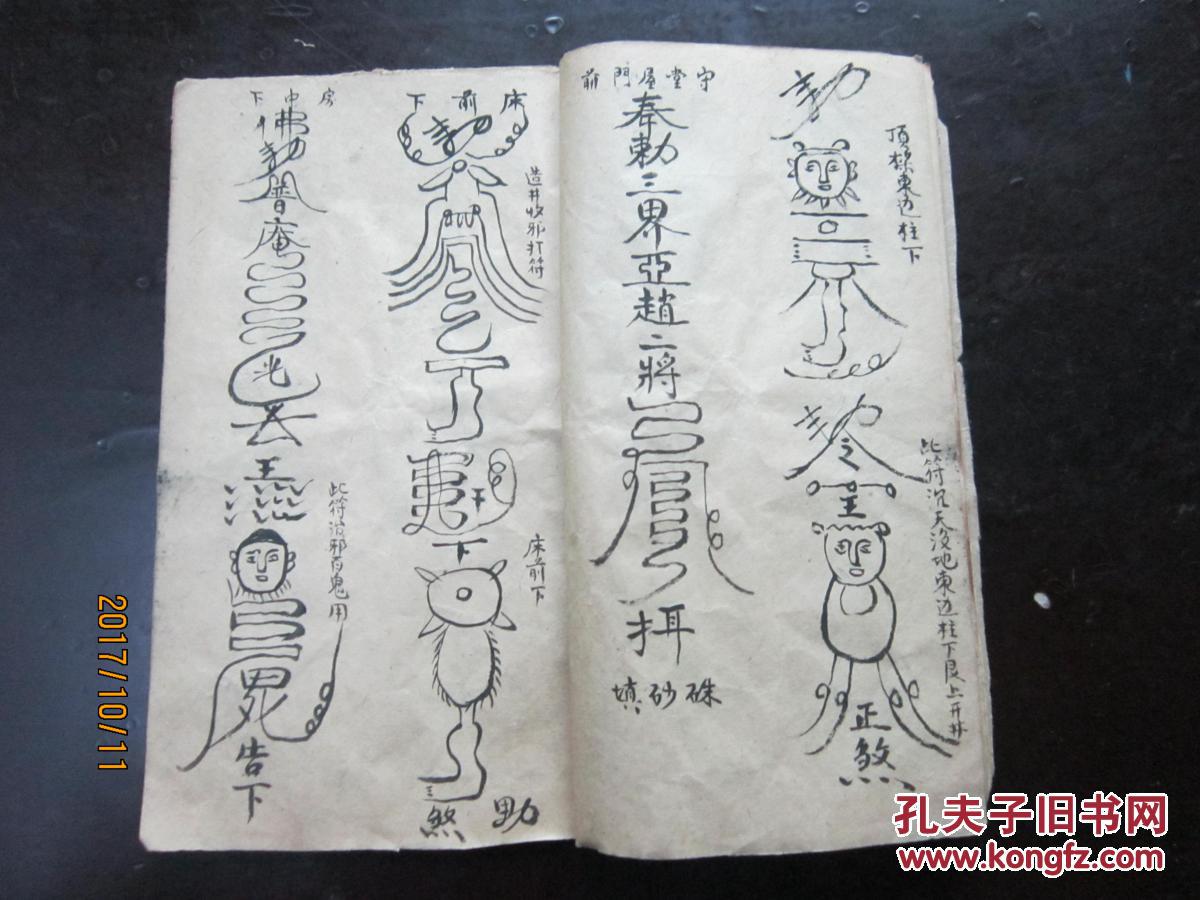 頂樑東边柱下
勅
勅令
此符沉天没地東边柱下艮上开井
正煞
守堂屋門前
奉勅三界亞趙二將
硃砂填
床前下
勅
造井收邪打符
下
床前下
煞
房中下
佛勅普庵
光
去
王
此符治邪百鬼用
告下
2017/10/11
孔夫子旧书网
www.kongfz.com